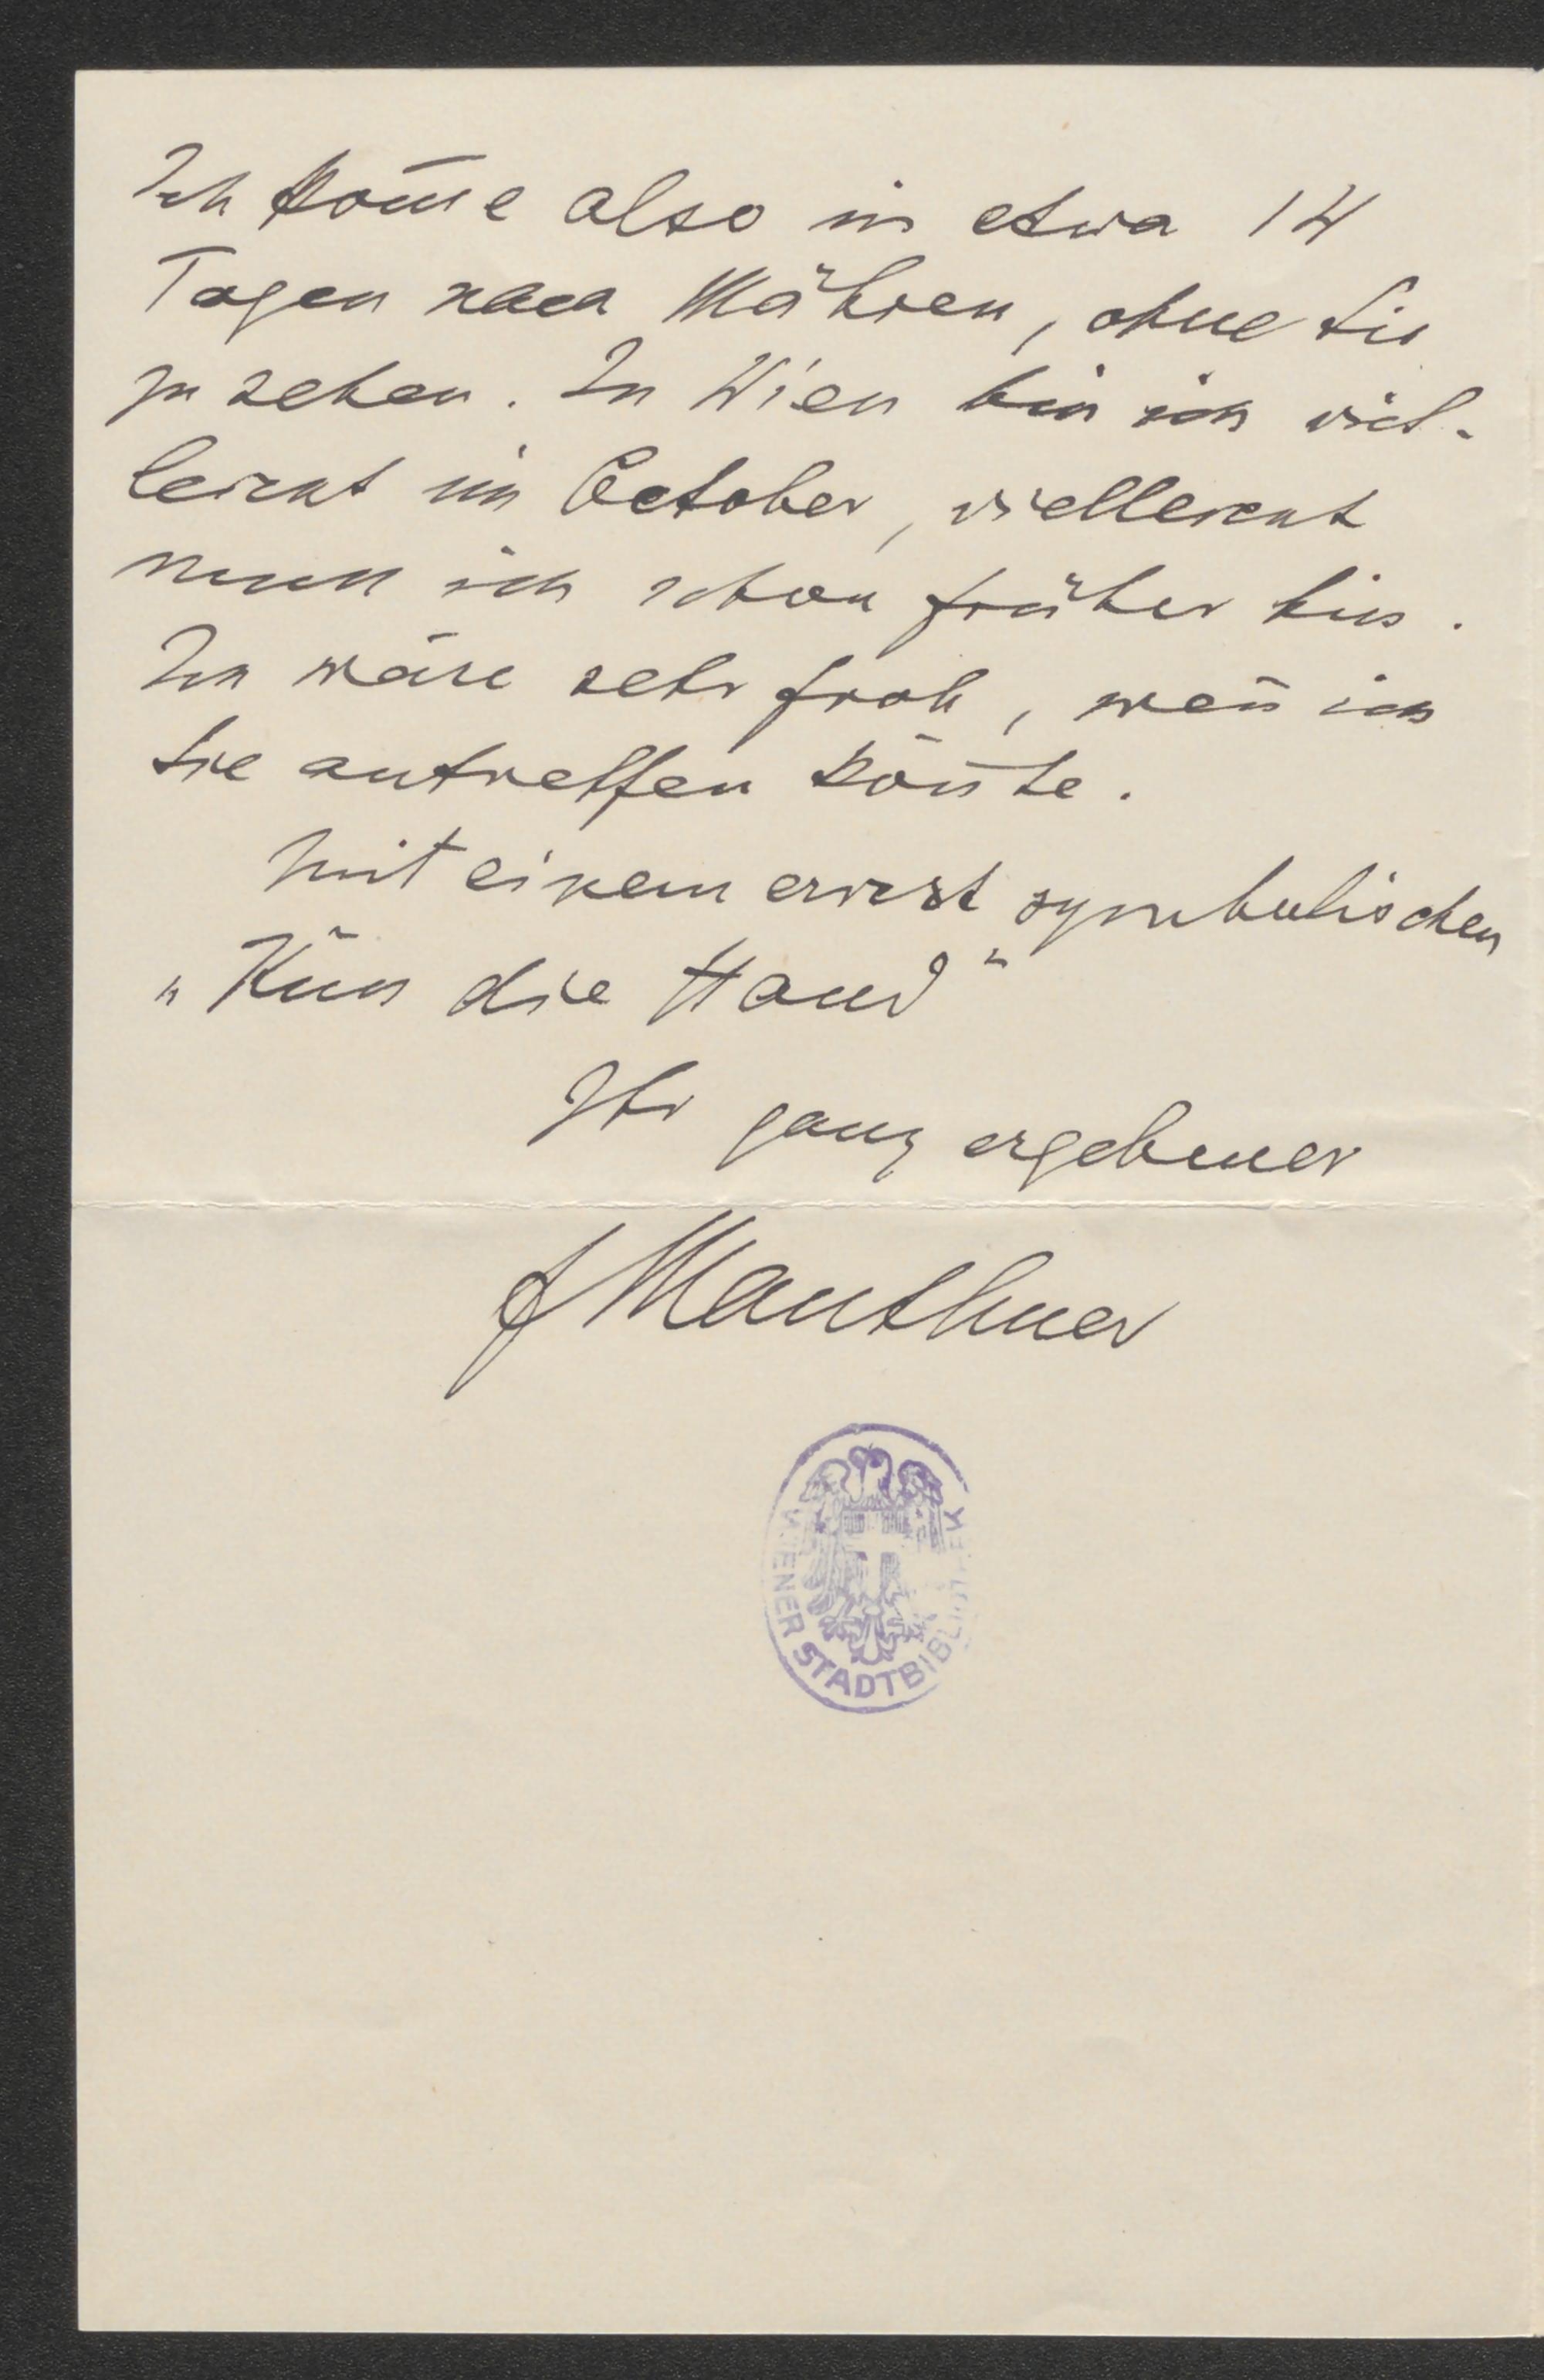 Ich kom̄e also in etwa 14
Tagen nach Mähren, ohne Sie
zu sehen. In Wien bin ich viel-
leicht im October, vielleicht
muss ich schon früher hin.
Ich wäre sehr froh, wen̄ ich
Sie antreffen kön̄te.
Mit einem symbolischen
„Küss die Hand“
Ihr ganz ergebener
F Mauthner
WIENER STADTBIBLIOTHEK